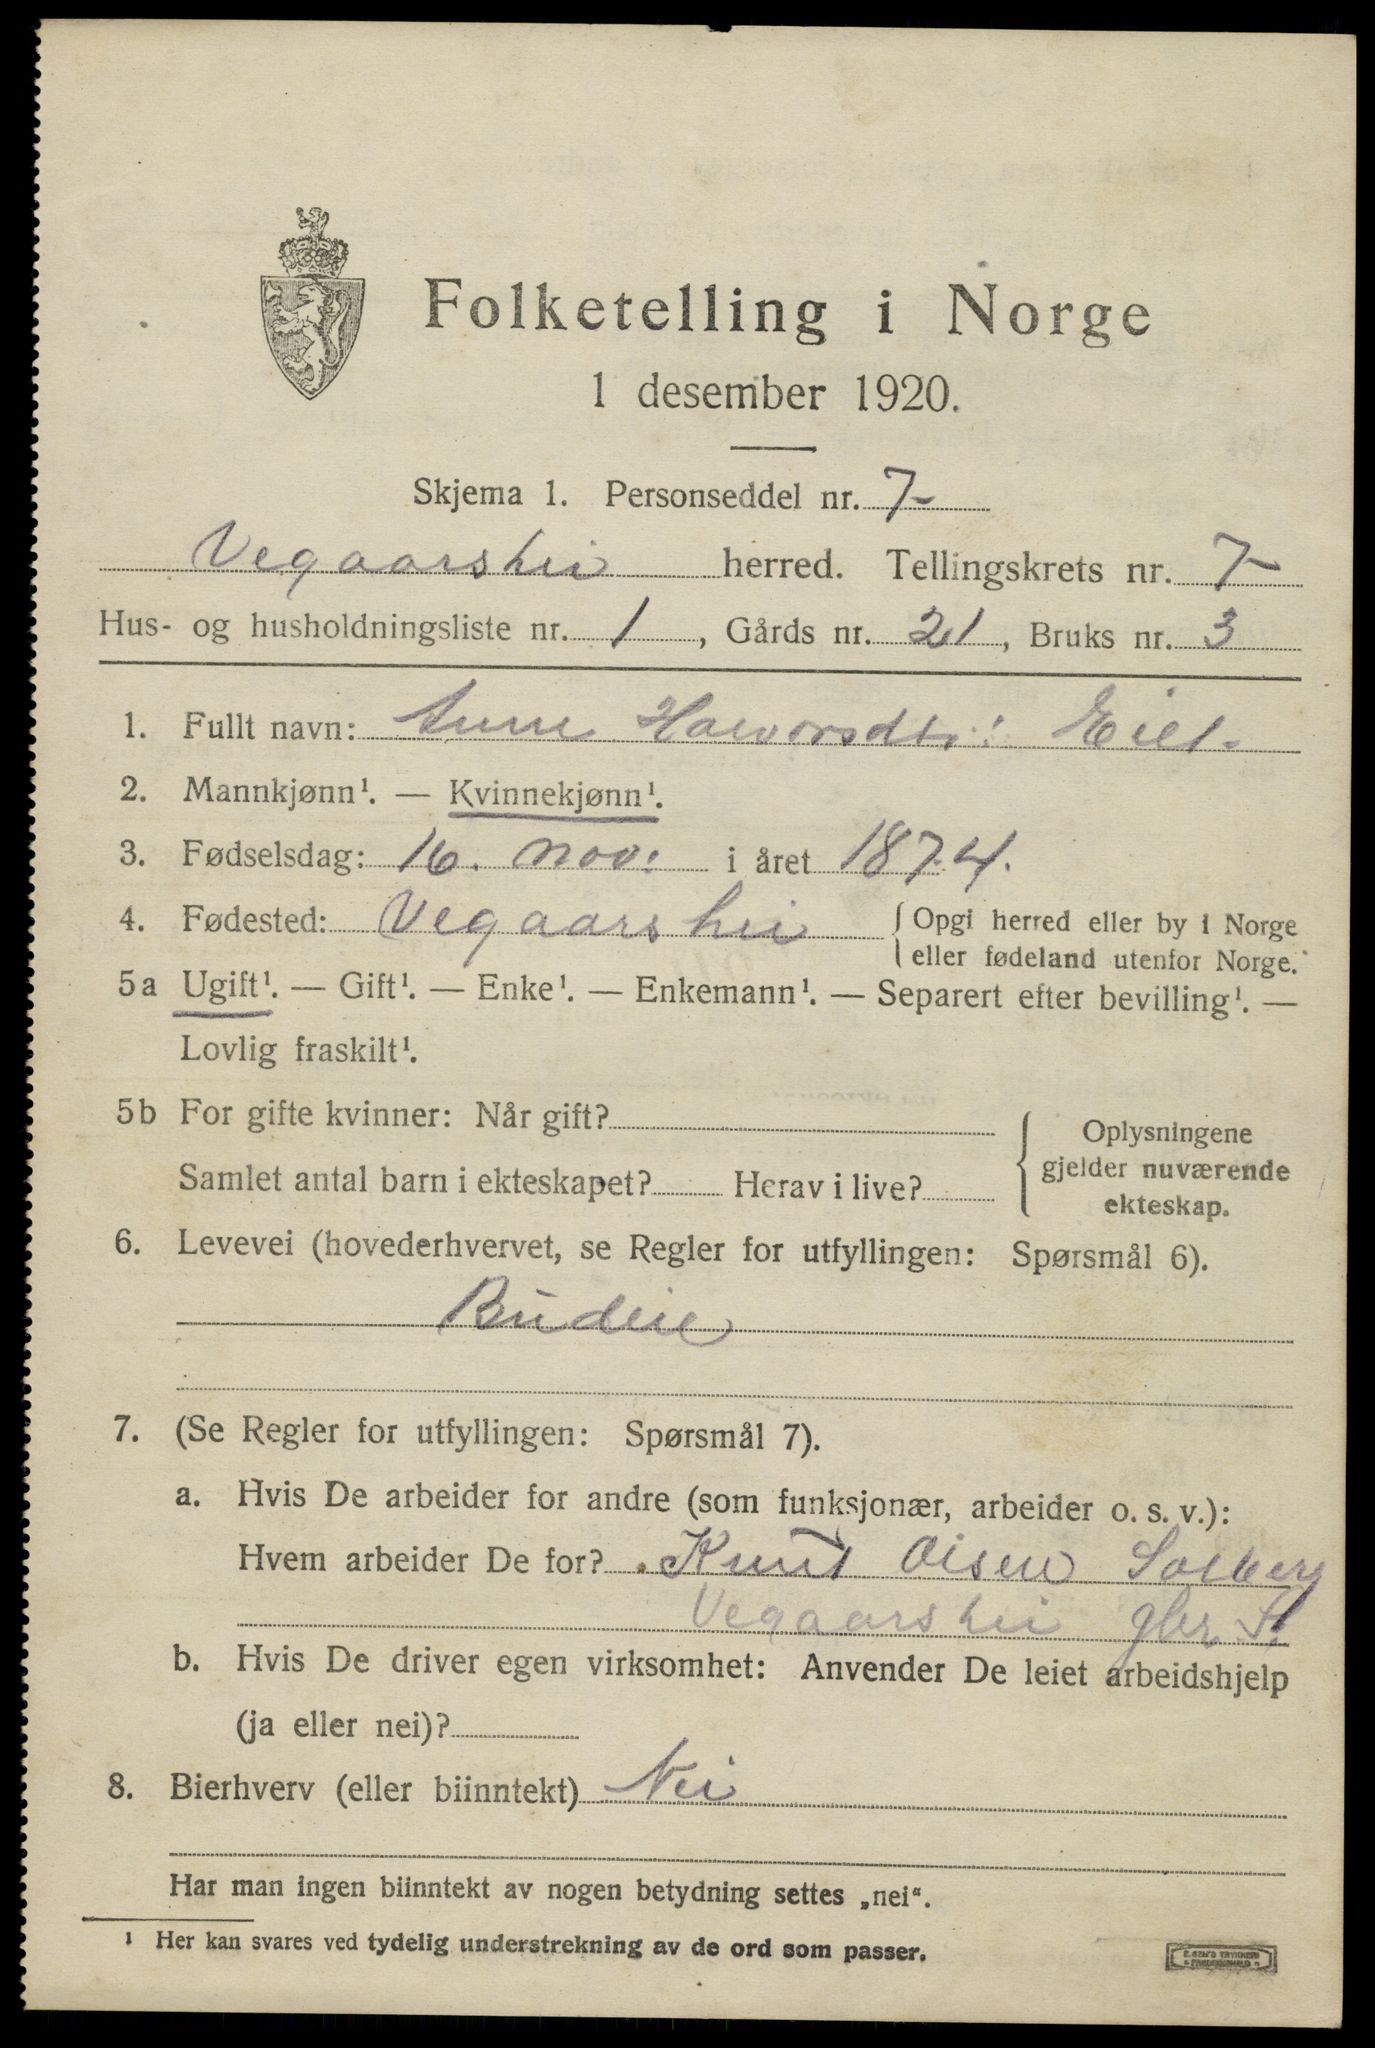 Folketelling i Norge
1 desember 1920.
Skjema 1. Personseddel nr. 7-
Vegaarshei herred. Tellingskrets nr. 7-
Hus- og husholdningsliste nr. 1, Gårds nr. 21, Bruks nr. 3
1. Fullt navn: Anne Halvorsdtr:
2. Mannkjønn¹. — Kvinnekjønn¹.
3. Fødselsdag: 16. nov: i året 1874.
4. Fødested: Vegaarshei { Opgi herred eller by i Norge
eller fødeland utenfor Norge.
5a Ugift¹. — Gift¹. — Enke¹. — Enkemann¹. — Separert efter bevilling¹. —
Lovlig fraskilt¹.
5b For gifte kvinner: Når gift?
Samlet antal barn i ekteskapet? Herav i live?
Oplysningene
gjelder nuværende
ekteskap.
6. Levevei (hovederhvervet, se Regler for utfyllingen: Spørsmål 6).
Budeie
7. (Se Regler for utfyllingen: Spørsmål 7).
a. Hvis De arbeider for andre (som funksjonær, arbeider o. s. v.):
Hvem arbeider De for? Knut Olsen Solberg
Vegaarshei gbr.
b. Hvis De driver egen virksomhet: Anvender De leiet arbeidshjelp
(ja eller nei)?
8. Bierhverv (eller biinntekt) Nei
Har man ingen biinntekt av nogen betydning settes „nei“.
¹ Her kan svares ved tydelig understrekning av de ord som passer.